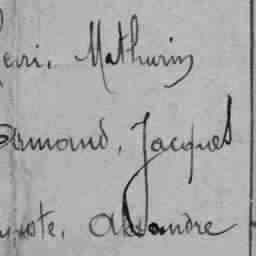 Henri, Mathurin
Armand, Jacques
Auguste, Alexandre